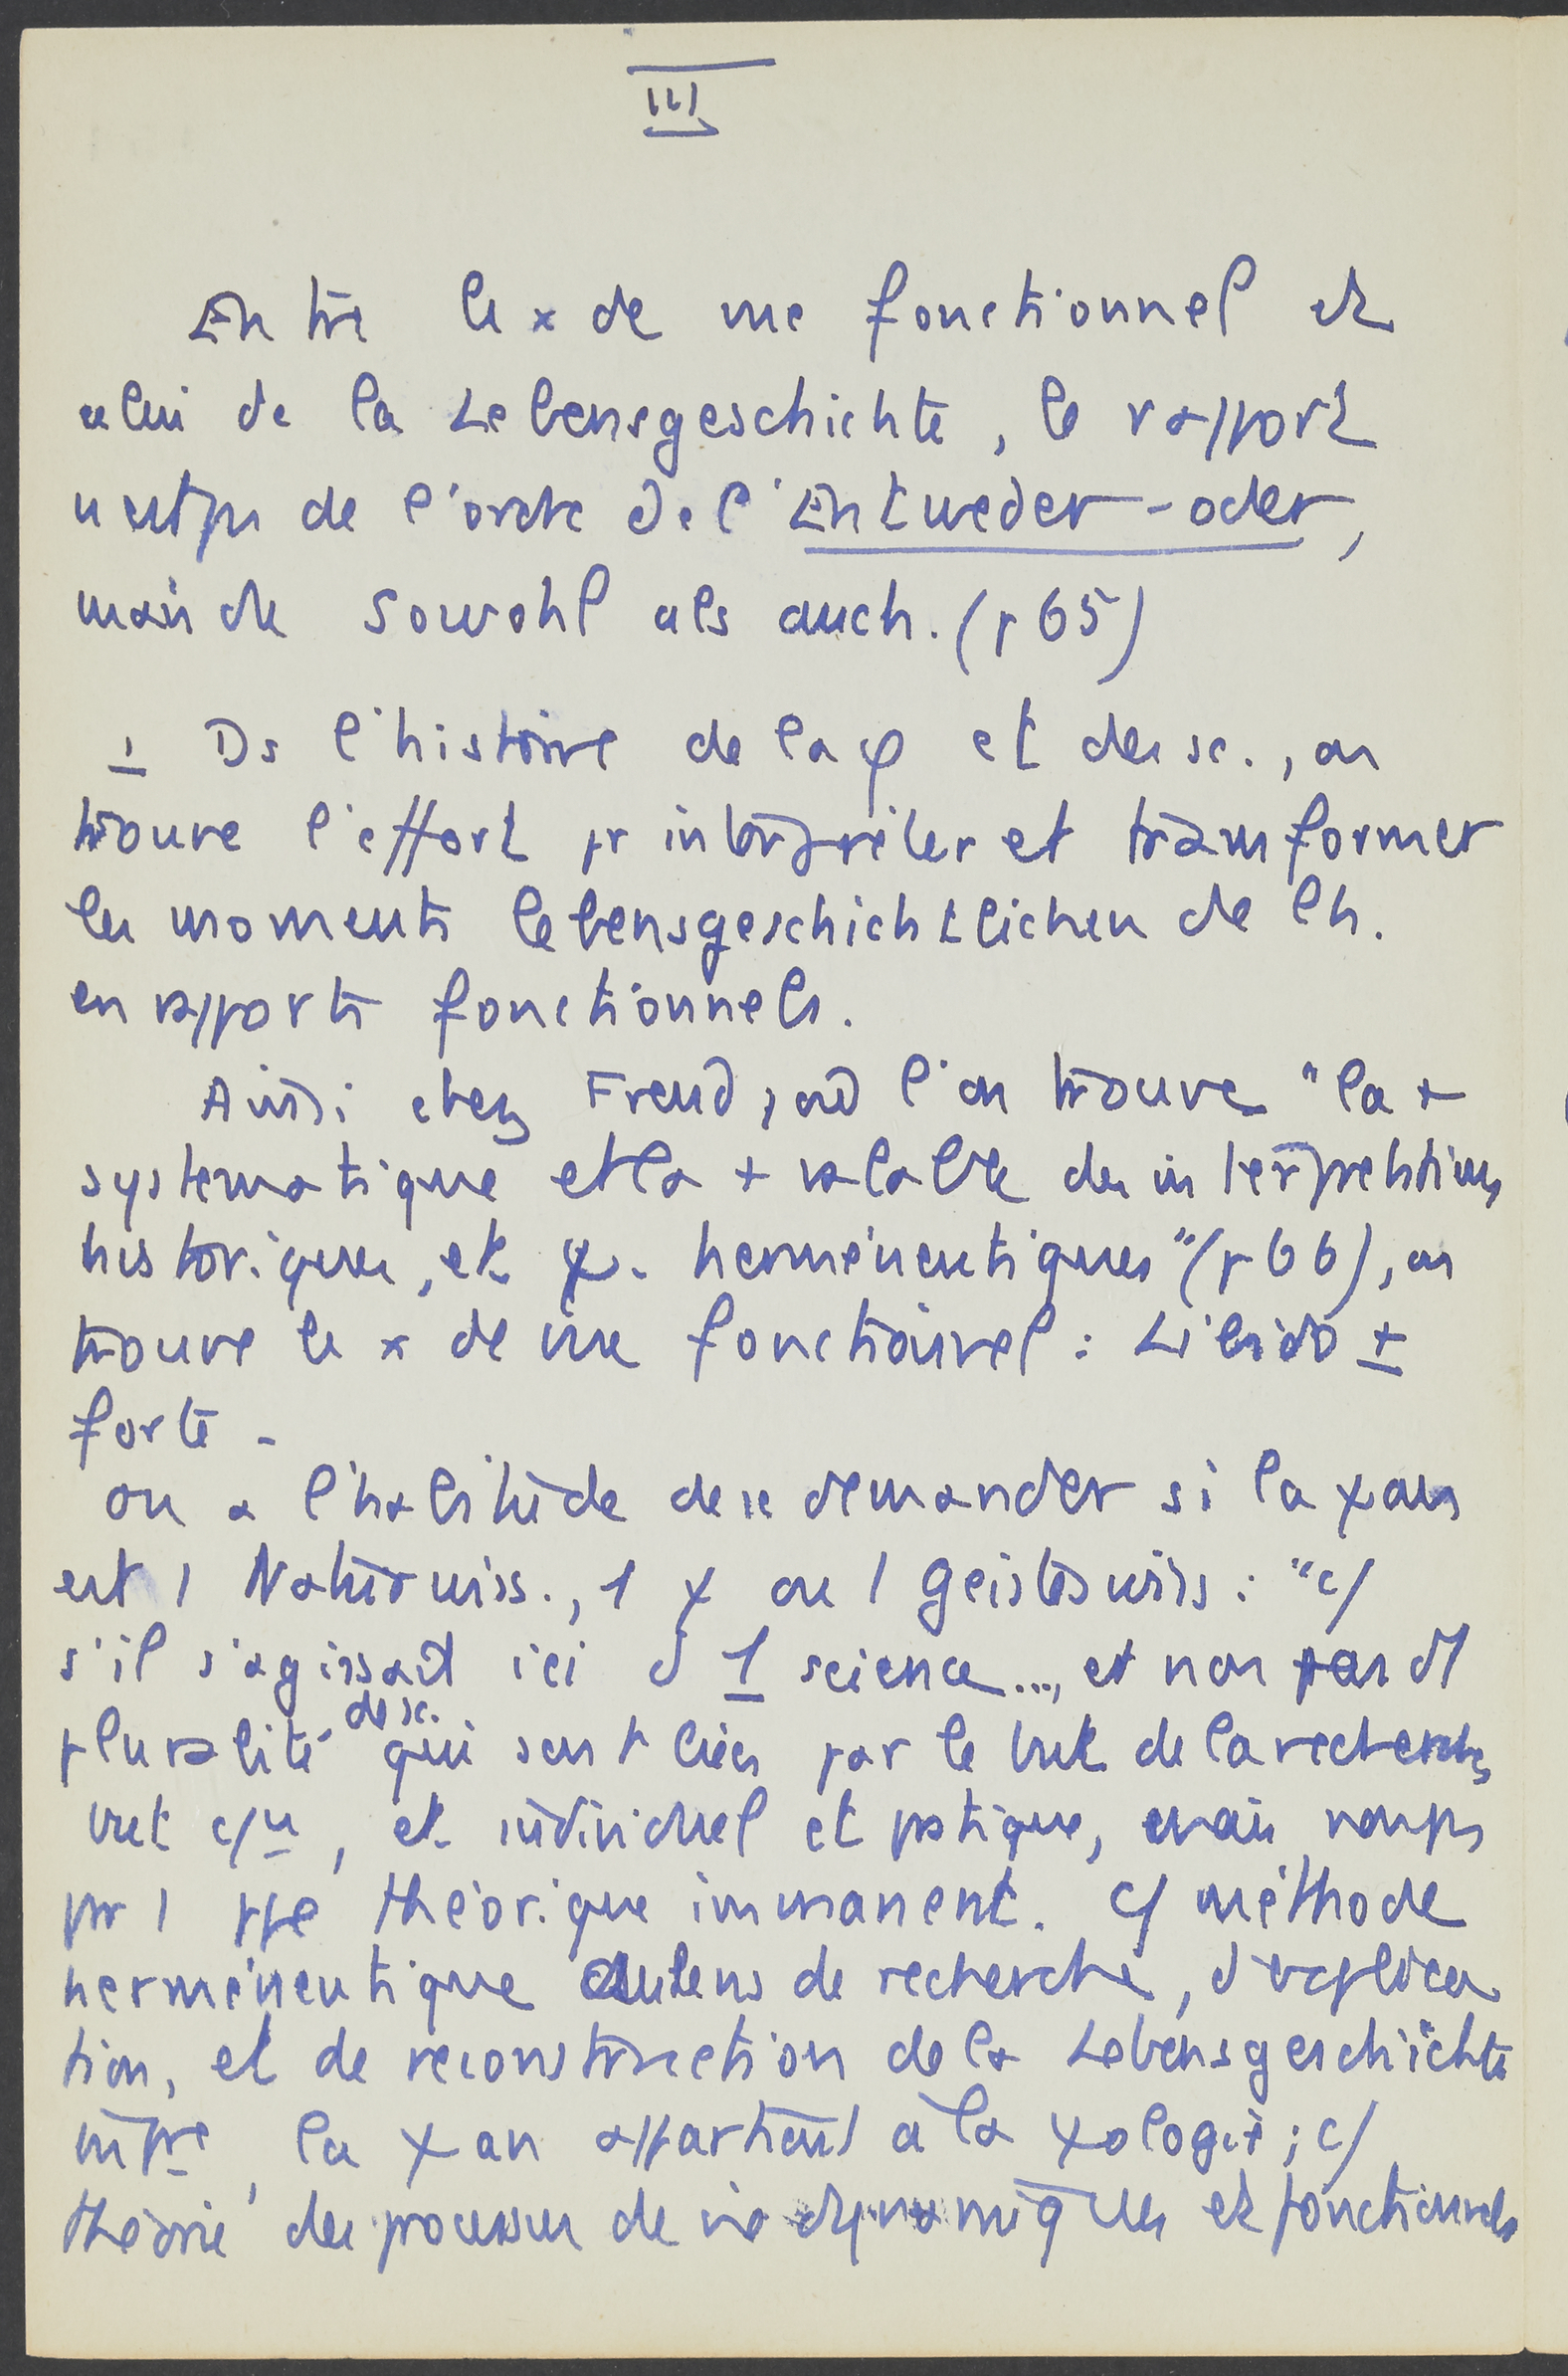 III
Entre le x de vue fonctionnel et
celui de la Lebensgeschichte, le rapport
n'est pas de l'ordre de l'Entweder-oder,
mais du sowohl als auch. (p 65)
1 Ds l'histoire de la φ et des sc., on
trouve l'effort pr interpréter et transformer
les moments lebensgeschichtlichen de l'h.
en rapports fonctionnels.
Ainsi chez Freud, où l'on trouve "la +
systematique et la + valable des interpretations
historiques, et ψ. herméneutiques" (p 66), on
trouve le x de vue fonctionnel : Libido ±
forte.
On a l'habitude de se demander si la ψan
est 1 Naturwiss., 1 ψ ou 1 Geisteswiss : "c/
s'il s'agissait ici d 1 science..., et non pas d'1
pluralité de sc. qui sont liées par le but de la recherche,
but c/u, et individuel et pratique, mais non pas
par 1 ppe théorique immanent. C/ méthode
herméneutique au sens de recherche, d'explica
tion, et de reconstruction de la Lebensgeschichte
intre, la ψan appartient à la ψologie ; c/
théorie des processus de vie dynamiques et fonctionnels